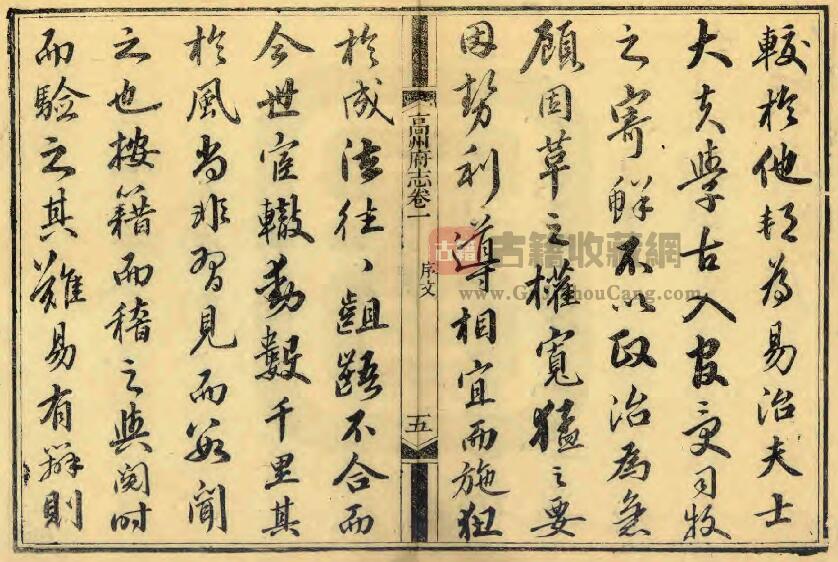 較於他為易治夫士
大夫學古入官受司牧
之寄鮮不以政治為急
顧因革之權寬猛之要
因勢利導相宜而施狃
高州府志卷一 序文 五
於成法往〻齟齬不合而
今世宦轍動數千里其
於風尚非習見而聞
之也按籍而稽之與閱時
而驗之其難易有辨則
古籍 古籍收藏網
www.GuJiShouCang.com